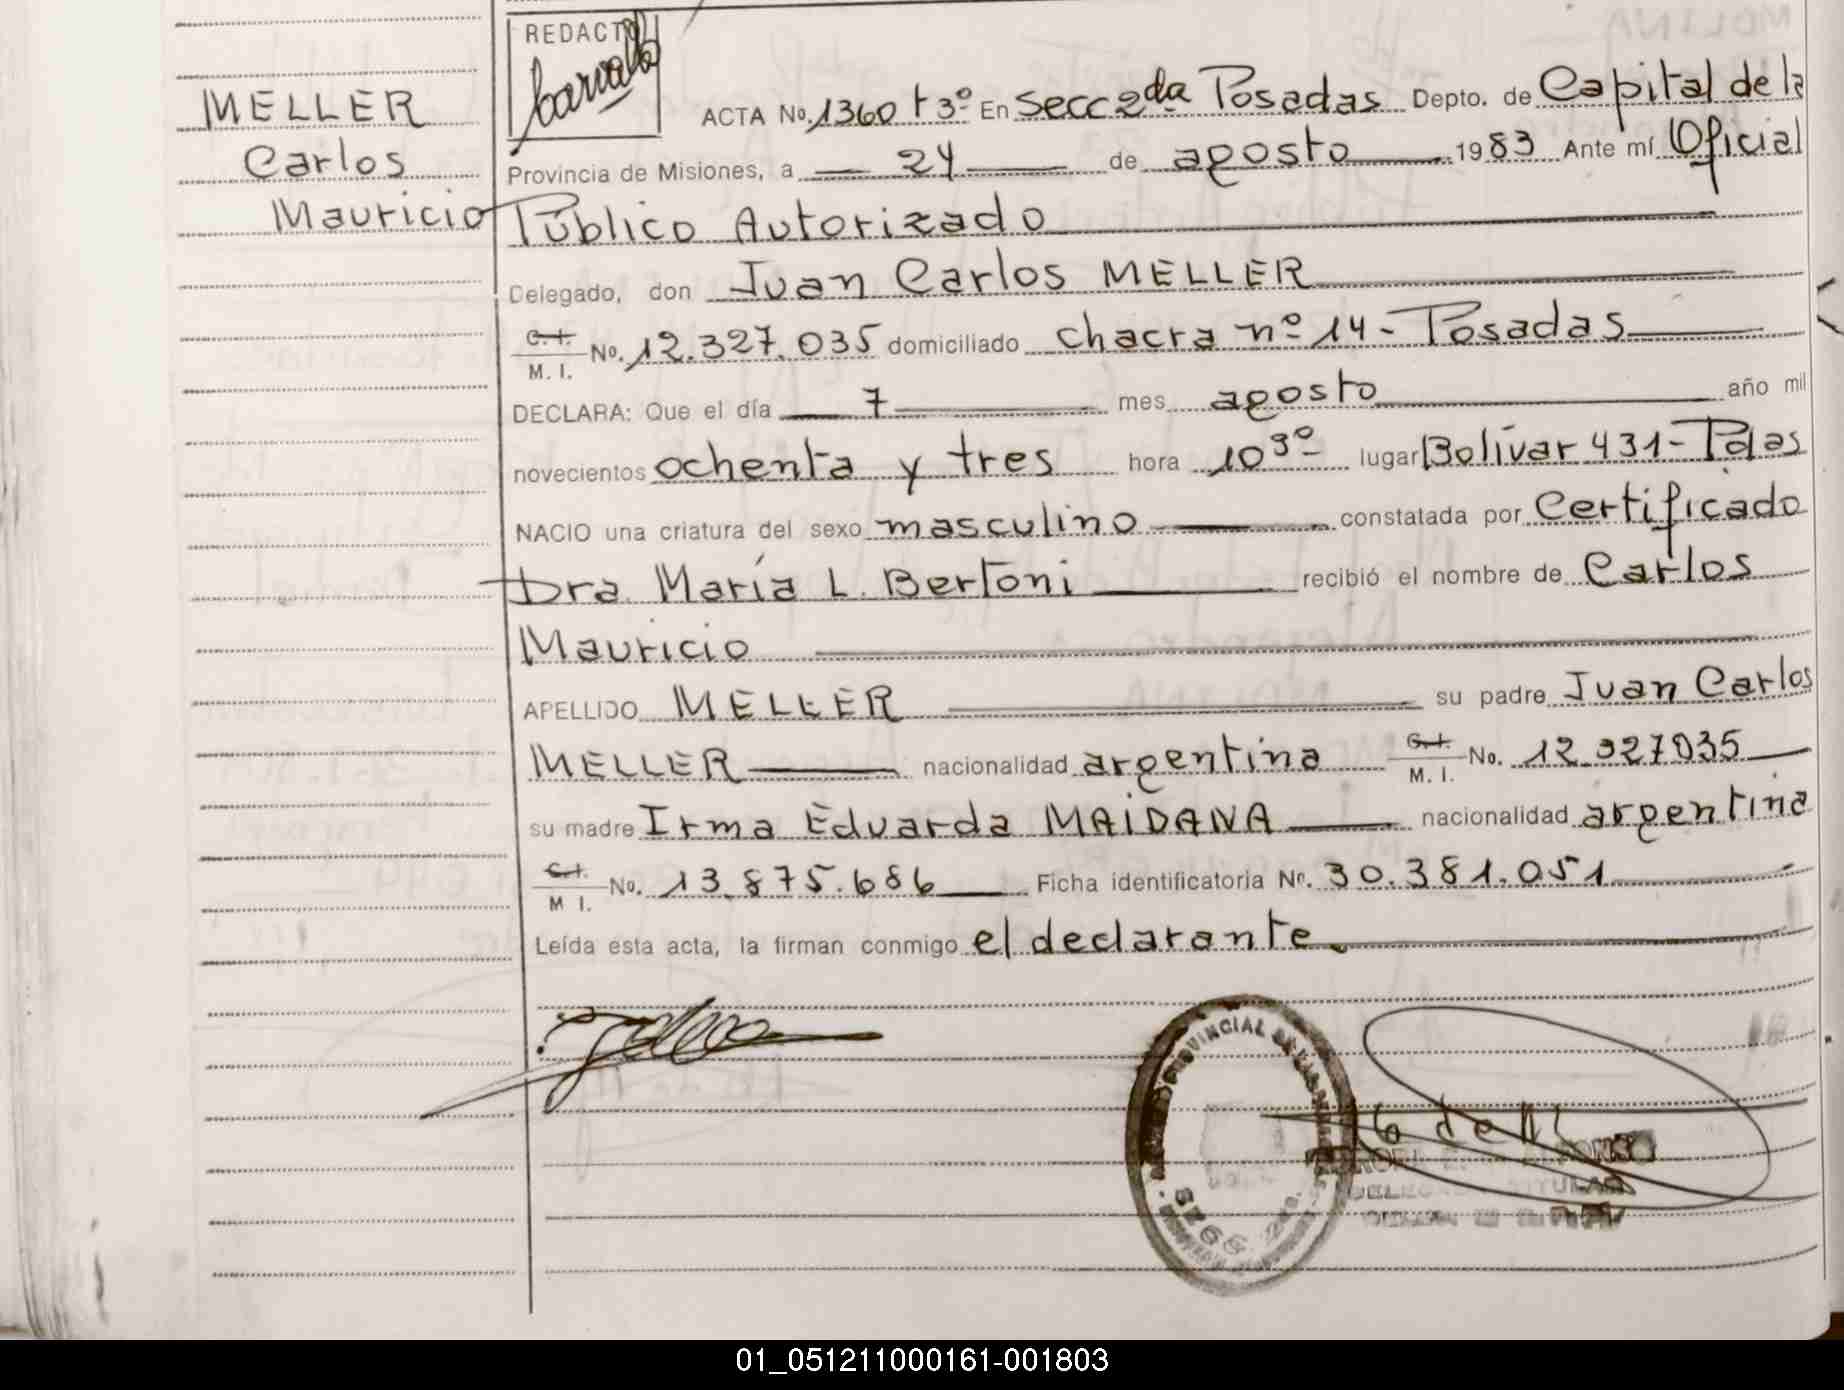 REDACTO
MELLER
Carlos
Mauricio
ACTA No. 1360 t 3º En Secc 2da Posadas Depto. de Capital de la
Provincia de Misiones, a 24 de agosto 1983 Ante mí Oficial
Público Autorizado
Delegado, don Juan Carlos MELLER
C.I.
M. I. No. 12.327.035 domiciliado chacra nº 14 - Posadas
DECLARA: Que el día 7 mes agosto año mil
novecientos ochenta y tres hora 10 30 lugar Bolívar 431 - Pdas
NACIO una criatura del sexo masculino constatada por Certificado
Dra. María L. Bertoni recibió el nombre de Carlos
Mauricio
APELLIDO MELLER su padre Juan Carlos
MELLER nacionalidad argentina C.I. M. I. No. 12.327035
su madre Irma Eduarda MAIDANA nacionalidad argentina
C.I.
M I. No. 13.875.686 Ficha identificatoria No. 30.381.051
Leída esta acta, la firman conmigo el declarante.
PROVINCIAL DE
01_051211000161-001803